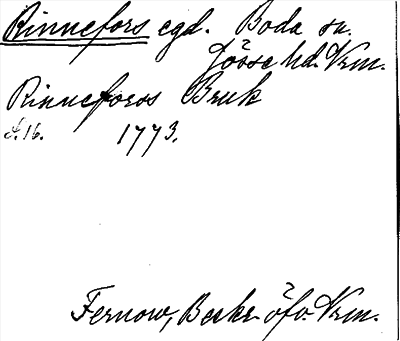 Rinnefors egd. Boda sn.
Jösse hd. Vrm.
Rinneforss Bruk
s. 16. 1773.
Fernow, Beskr. öfv. Vrm.